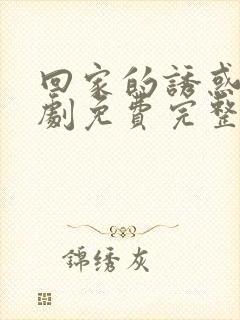 回家的誘惑
劇免費完整
錦绣灰